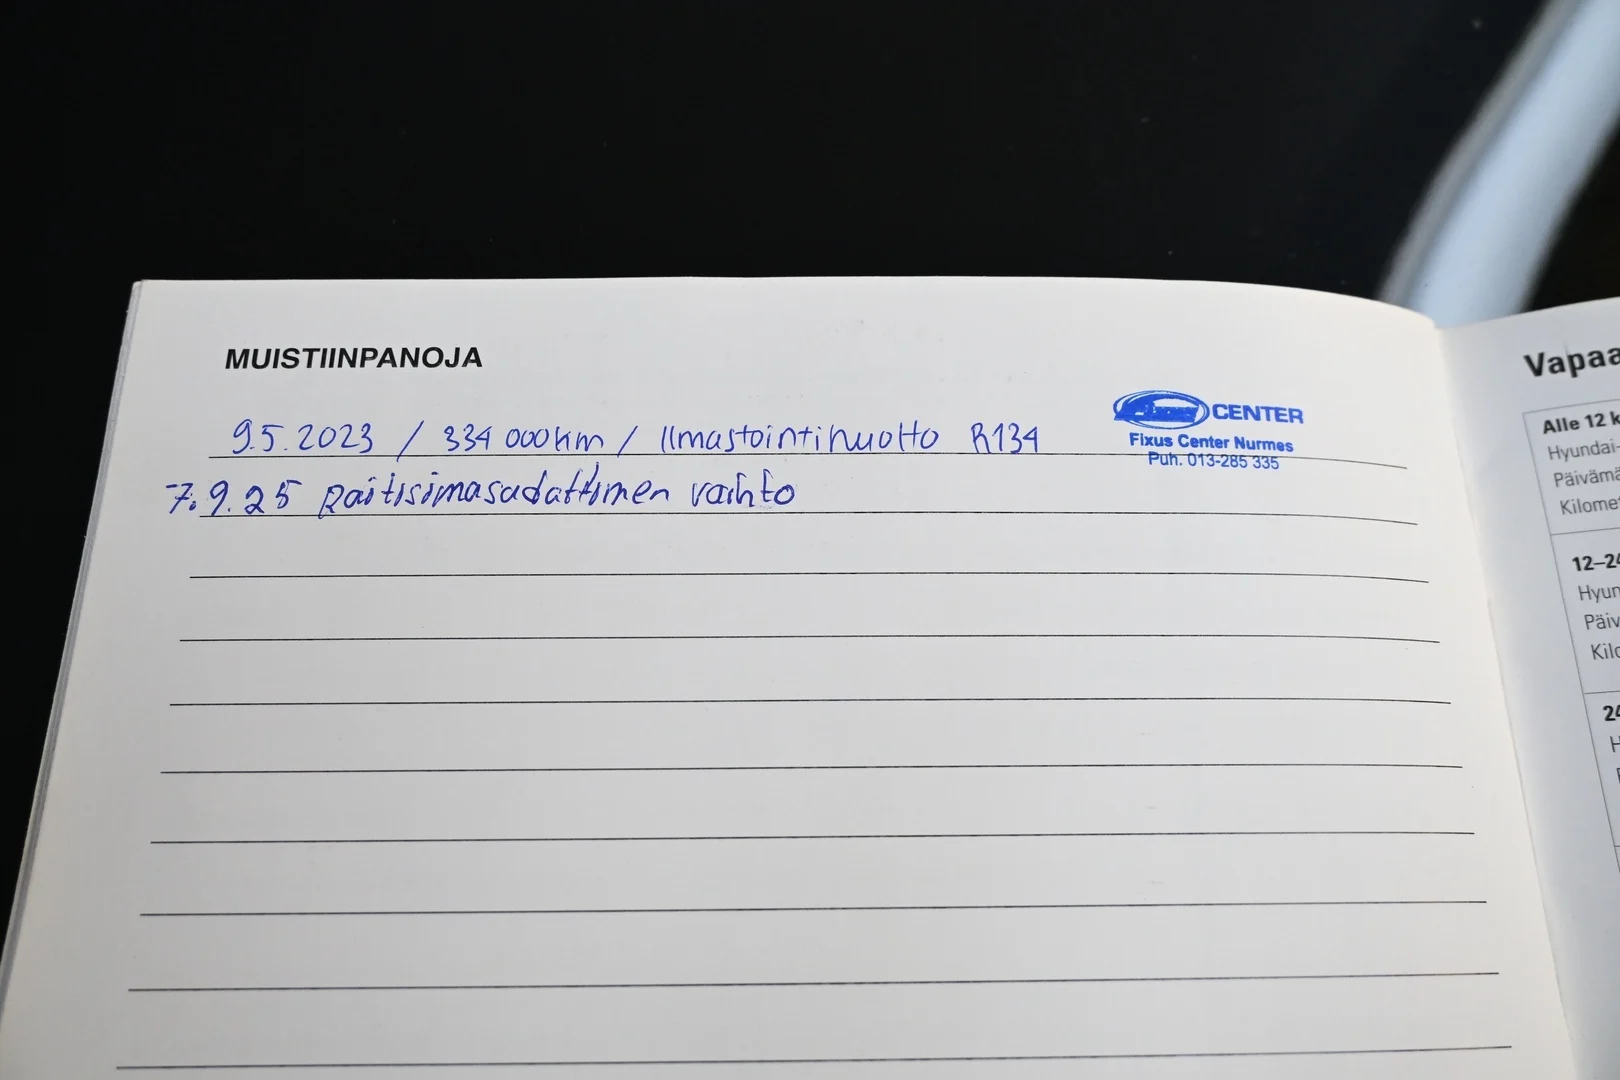 MUISTIINPANOJA
9.5.2023 / 334 000 km / Ilmastointihuolto R134
CENTER
Fixus Center Nurmes
Puh. 013-285 335
7.9.25 raitisilmasuodattimen vaihto
Vapaa
Alle 12 k
Hyundai-
Päivämä
Kilomet
12–24
Hyun
Päiv
Kilo
24
H